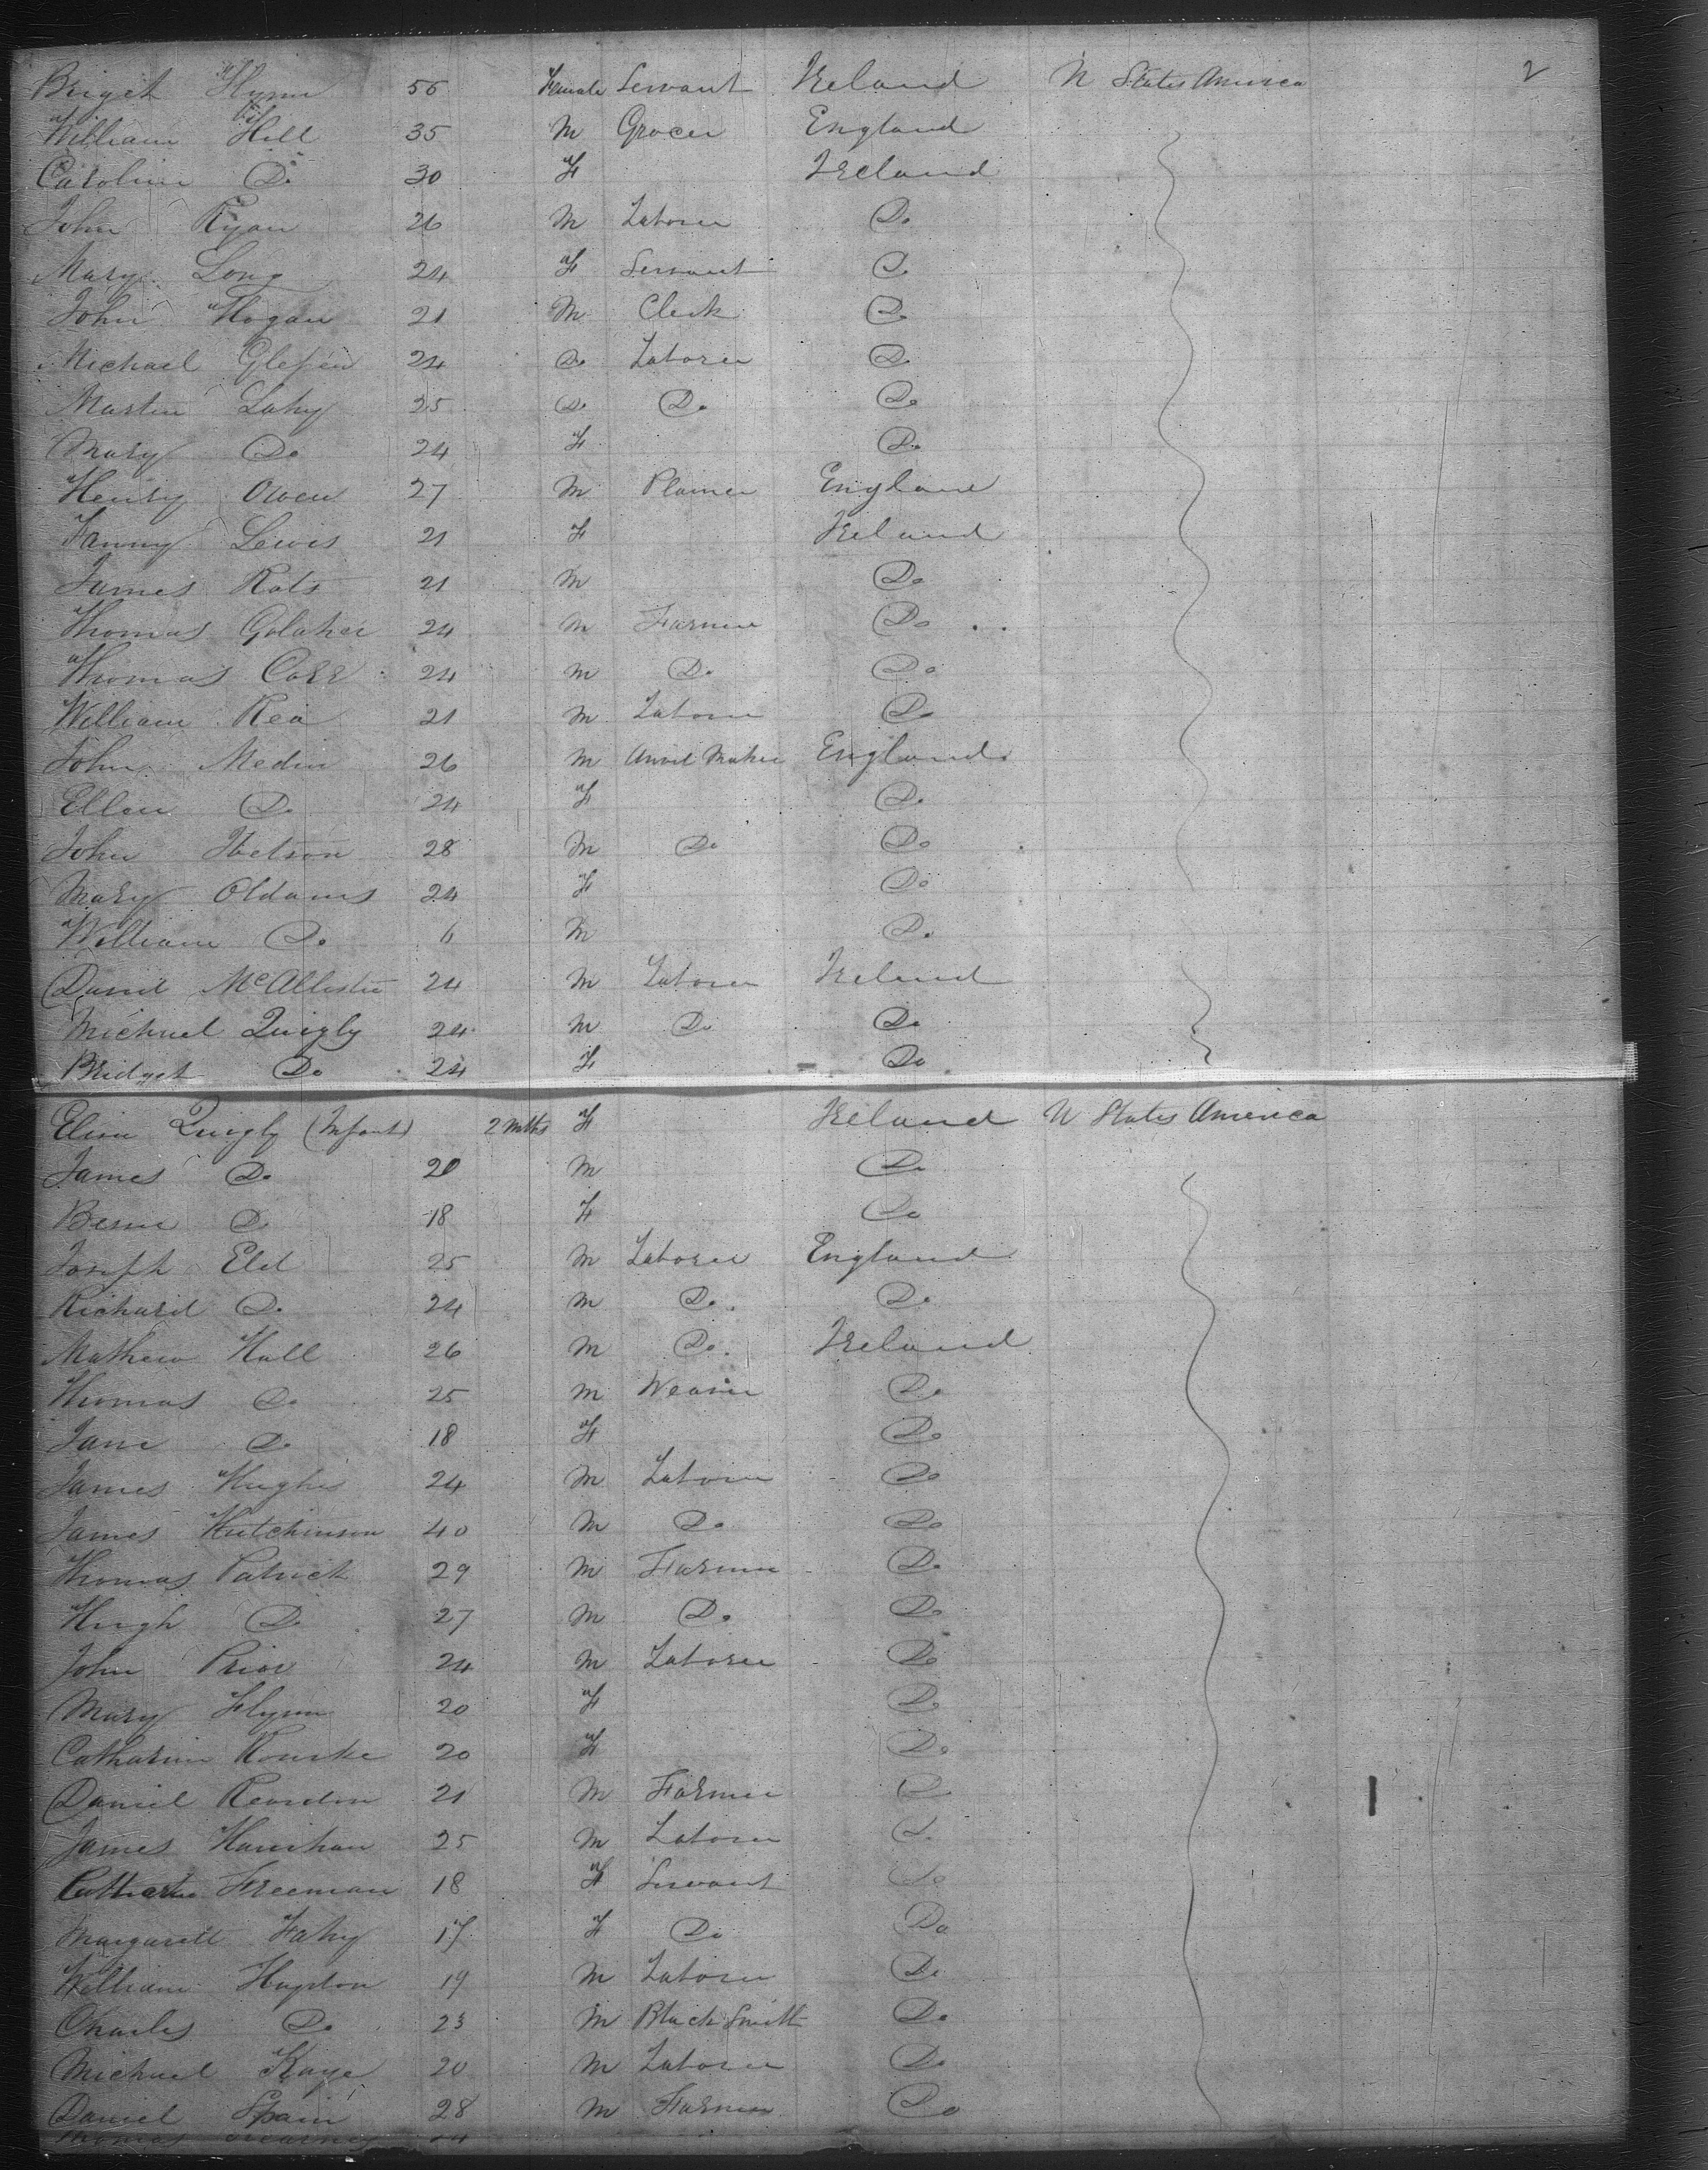 2
Briget Flynn 56 Female Servant Ireland U States America
William Hill 35 M Grocer England
Caroline Do 30 F Ireland
John Ryan 26 M Laborer Do
Mary Long 24 F Servant Do
John Hogan 21 M Clerk Do
Michael 24 Do Laborer Do
Martin Lahy 25 Do Do Do
Mary Do 24 F Do
Henry Owen 27 M England
Fanny Lewis 21 F Ireland
James 21 M Do
Thomas Golaher 24 M Farmer Do
Thomas Corr 24 M Do Do
William Rea 21 M Laborer Do
John Medin 26 M Anvil Maker England
Ellen Do 24 F Do
John 28 M Do Do
Mary Oldams 24 F Do
William Do 6 M Do
David McAllister 24 M Laborer Ireland
Michael Quigly 24 M Do Do
Bridget Do 24 F Do
Eliza Quigly (Infant) 2 Mths F Ireland U States America
James Do 20 M Do
Do 18 F Do
Joseph Eld 25 M Laborer England
Richard Do 24 M Do Do
Mathew Hall 26 M Do Ireland
Thomas Do 25 M Weaver Do
Jane Do 18 F Do
James Hughes 24 M Laborer Do
James Hutchinson 40 M Do Do
Thomas Patrick 29 M Farmer Do
Hugh Do 27 M Do Do
John Prior 24 M Laborer Do
Mary Flynn 20 F Do
Catharine Rourke 20 F Do
Daniel Reardon 21 M Farmer Do
James Hanihan 25 M Laborer Do
Freeman 18 F Servant Do
Margarett Fahy 17 F Do Do
William Hupton 19 M Laborer Do
Charles Do 23 M Black Smith Do
Michael Kaye 20 M Laborer Do
Daniel Spain 28 M Farmer Do
Thomas 24